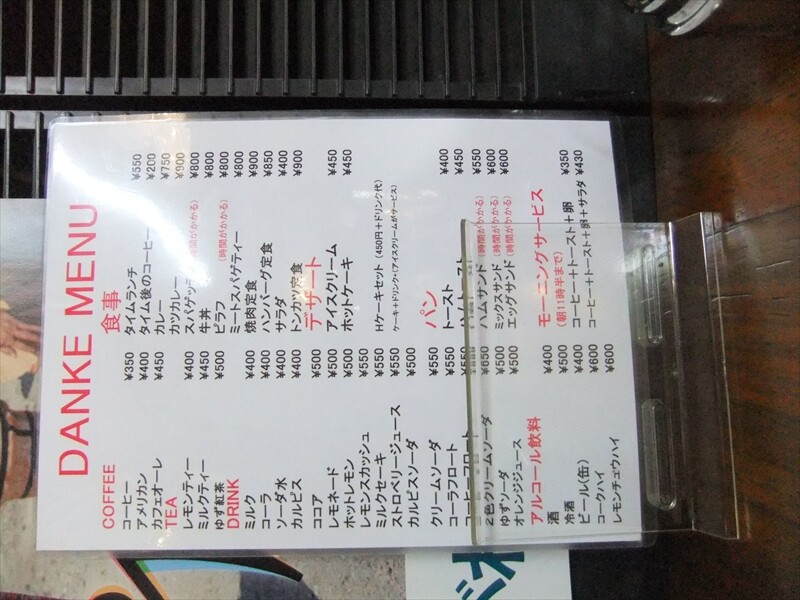 DANKE MENU
COFFEE
コーヒー ¥350
アメリカン ¥400
カフェオーレ ¥450
TEA
レモンティー ¥400
ミルクティー ¥450
ゆず紅茶 ¥500
DRINK
ミルク ¥400
コーラ ¥400
ソーダ水 ¥400
カルピス ¥400
ココア ¥500
レモネード ¥500
ホットレモン ¥500
レモンスカッシュ ¥550
ミルクセーキ ¥550
ストロベリージュース ¥550
カルピスソーダ ¥500
クリームソーダ ¥550
コーラフロート ¥550
コーヒーフロート ¥550
2色クリームソーダ ¥650
ゆずソーダ ¥500
オレンジジュース ¥500
アルコール飲料
酒 ¥400
冷酒 ¥500
ビール(缶) ¥400
コークハイ ¥600
レモンチュウハイ ¥600
食事
タイムランチ ¥550
タイム後のコーヒー ¥200
カレー ¥750
カツカレー ¥900
(時間がかかる) ¥800
牛丼 ¥800
ピラフ (時間がかかる) ¥800
ミートスパゲティー ¥800
焼肉定食 ¥900
ハンバーグ定食 ¥850
サラダ ¥400
トンカツ定食 ¥900
デザート
アイスクリーム ¥450
ホットケーキ ¥450
Hケーキセット (450円+ドリンク代)
ケーキ+ドリンク+(アイスクリームがサービス)
パン
トースト ¥400
¥450
ハムサンド (時間がかかる) ¥550
ミックスサンド (時間がかかる) ¥600
エッグサンド (時間がかかる) ¥600
モーニングサービス
(朝11時半まで)
コーヒー+トースト+卵 ¥350
コーヒー+トースト+卵+サラダ ¥430